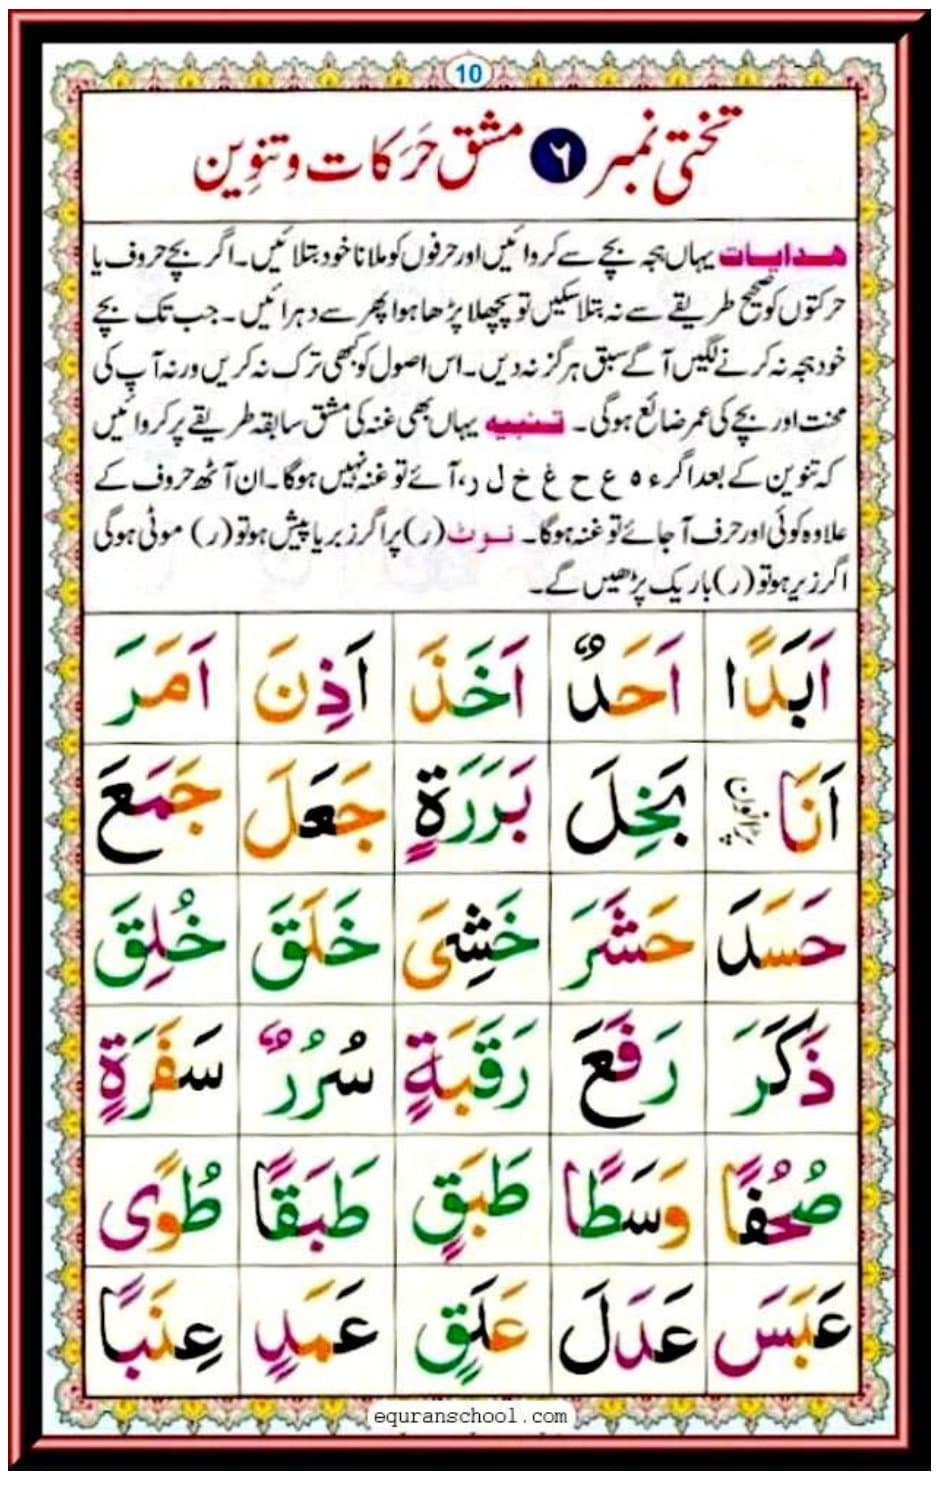 10
تختی نمبر ۶ مشق حَرَکات و تنوِین
ھدایات یہاں ہجہ بچے سے کروائیں اور حرفوں کو ملانا خود بتلائیں۔ اگر بچے حروف یا
حرکتوں کو صحیح طریقے سے نہ بتلا سکیں تو پچھلا پڑھا ہوا پھر سے دہرائیں۔ جب تک بچے
خود ہجہ نہ کرنے لگیں آگے سبق ہرگز نہ دیں۔ اس اصول کو کبھی ترک نہ کریں ورنہ آپ کی
محنت اور بچے کی عمر ضائع ہوگی۔ تنبیه یہاں بھی غنہ کی مشق سابقہ طریقے پر کروائیں
کہ تنوین کے بعد اگر ء ہ ع ح غ خ ل ر، آئے تو غنہ نہیں ہوگا۔ ان آٹھ حروف کے
علاوہ کوئی اور حرف آجائے تو غنہ ہوگا۔ نوٹ (ر) پر اگر زبر یا پیش ہو تو (ر) موٹی ہوگی
اگر زیر ہو تو (ر) باریک پڑھیں گے۔
اَبَدًا اَحَدٌ اَخَذَ اَذِنَ اَمَرَ
اَنَا بَخِلَ بَرَرَةٍ جَعَلَ جَمَعَ
حَسَدَ حَشَرَ خَشِیَ خَلَقَ خُلِقَ
ذَكَرَ رَفَعَ رَقَبَةٍ سُرُرٌ سَفَرَةٍ
صُحُفًا وَسَطًا طَبَقٍ طَبَقًا طُوًی
عَبَسَ عَدَلَ عَلَقٍ عَمَدٍ عِنَبًا
equranschool.com